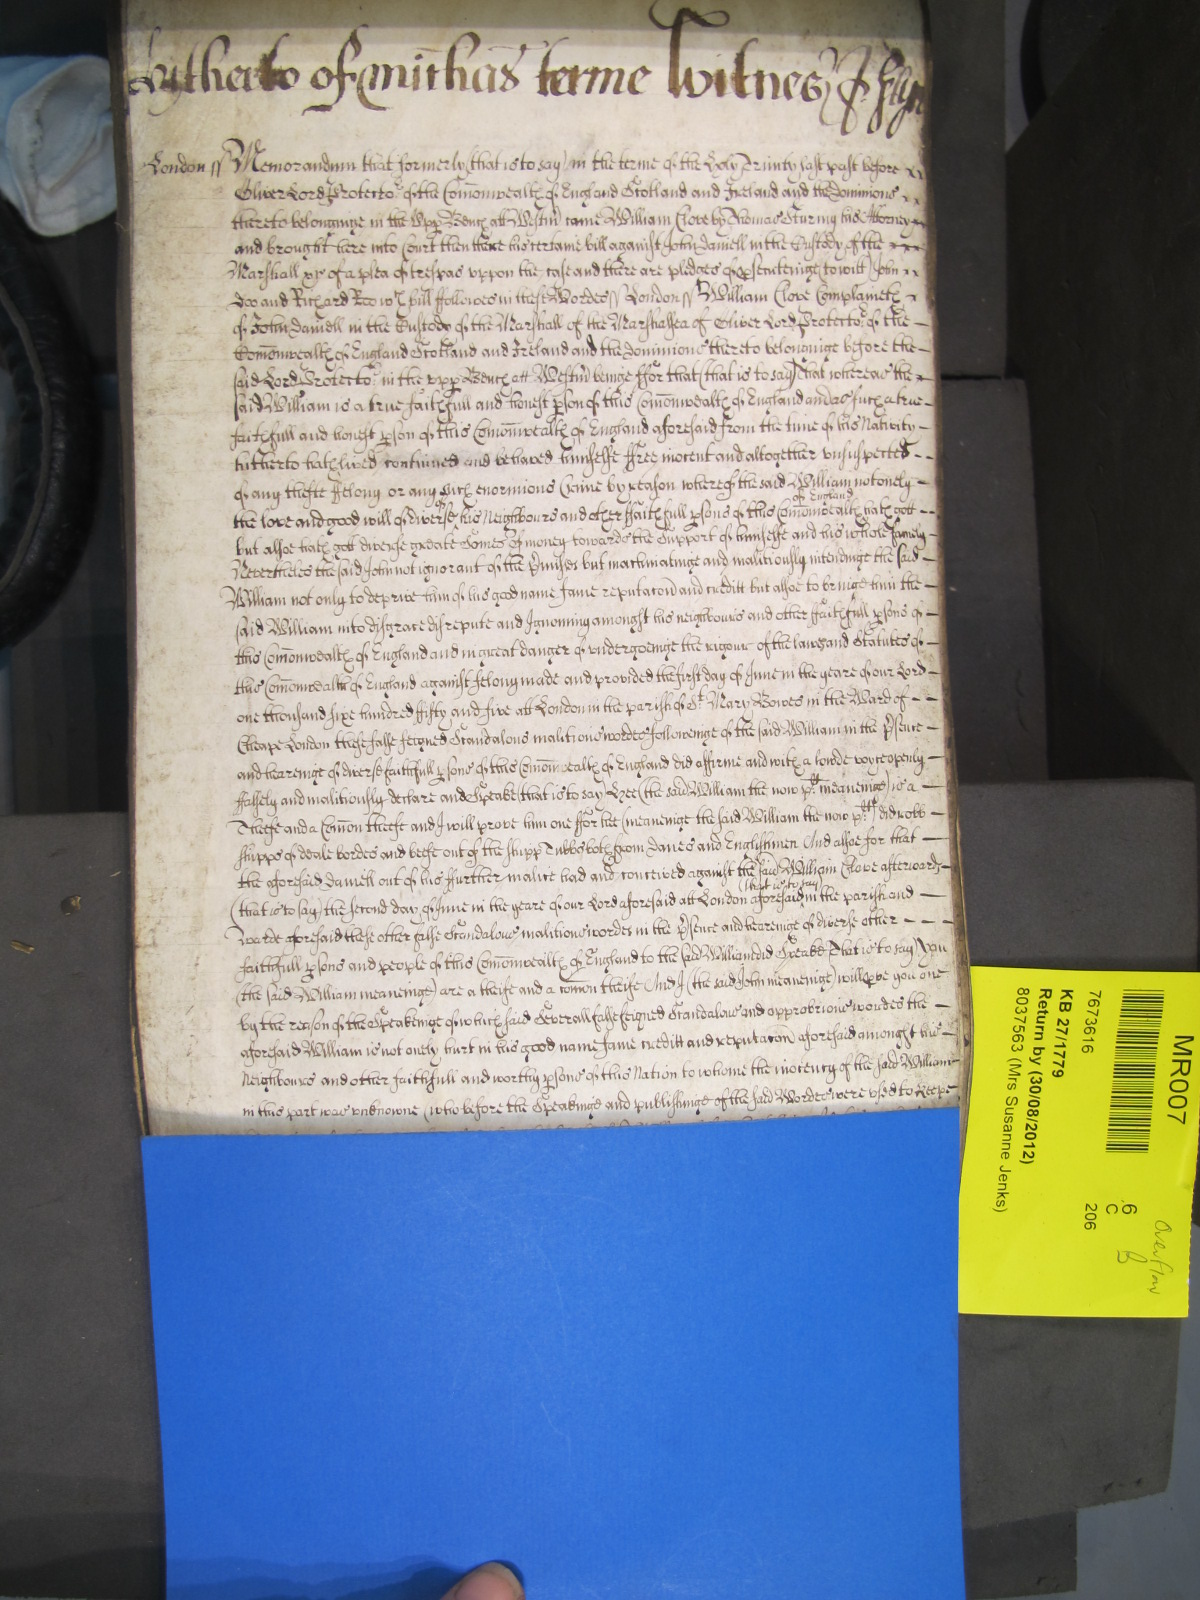 hytherto of Mich̄as terme Witnes
London ss Memorandum that formerly (that is to say) in the terme of the Holy Trinity last past before
Oliver Lord Protector of the Com̄onwealth of England Scotland and Ireland and the Dominions
thereto belonginge in the Upp Bench att Westm̄ came William Clove by Thomas Sturing his Attorney
and brought here into Court then there his certaine bill against John Daniell in the Custody of the
Marshall &c of a plea of trespas vppon the case and there are pledges of psecuteinge to witt John
Doo and Richard Roo wch bill followes in these Wordes ss London ss William Clove Complaineth
of John Daniell in the Custody of the Marshall of the Marshalsea of Oliver Lord Protector of the
Com̄onwealth of England Scotland and Ireland and the Dominions thereto belonginge before the
said Lord Protector in the vpp Bench att Westm̄ beinge ffor that (that is to say) that whereas the
said William is a true faithfull and honest pson of this Com̄onwealth of England and as such a true
faithfull and honest pson of this Com̄onwealth of England aforesaid from the time of his Nativity
hitherto hath lived continued and behaved himselfe ffree inocent and altogether vnsuspected
of any thefte ffelony or any such enormious Crime by reason whereof the said William not onely
the love and good will of diverse of his Neighbours and other ffaithfull psons of this Com̄onwealth of England hath gott
but alsoe hath gott diverse greate Somes of money towards the Support of himselfe and his whole family
Nevertheles the said John not ignorant of the pmisses but machinateinge and malitiously intendinge the said
William not only to deprive him of his good name fame reputacon and creditt but alsoe to bringe him the
said William into disgrace disrepute and Ignominy amongst his neighbours and other ffaithfull psons of
this Com̄onwealth of England and in great danger of vndergoeinge the rigour of the lawes and Statutes of
this Com̄onwealth of England against felony made and provided the first day of June in the yeare of our Lord
one thousand sixe hundred fifty and five att London in the parish of St Mary Bowes in the Ward of
Cheape London these false feigned Scandalous malitious wordes followeinge of the said William in the psence
and heareinge of diverse faithfull psons of this Com̄onwealth of England did affirme and with a lowde voyce openly
ffalsely and malitiously declare and Speake (that is to say) Hee (the said William the now plt meaneinge) is a
Theefe and a Com̄on theefe and I will prove him one ffor hee (meaneinge the said William the now plt) did robb
shipps of deale bordes and beefe out of the shipp Tubbs both from Danes and Englishmen And alsoe for that
the aforesaid Daniell out of his ffurther malice had and conceived against the said William Clove afterwards
(that is to say) the second day of June in the yeare of our Lord aforesaid att London aforesaid (that is to say) in the parish and
warde aforesaid these other false Scandalous malitious wordes in the psence and heareinge of diverse other
faithfull psons and people of this Com̄onwealth of England to the said William did Speake (that is to say) You
(the said William meaneinge) are a theife and a com̄on theife And I (the said John meaneinge) will pve you one
by the reason of the Speakinge of which said Severall false feigned Scandalous and opprobrious wordes the
aforesaid William is not onely hurt in his good name fame creditt and reputacon aforesaid amongst his
Neighbours and other faithfull and worthy psons of this Nation to whome the inocency of the said William
in this part was vnknowne (who before the Speakinge and publishinge of the said Wordes were vsed to keepe
MR007
7673616
.6
C
206
KB 27/1779
Return by (30/08/2012)
8037563 (Mrs Susanne Jenks)
Overflow
B